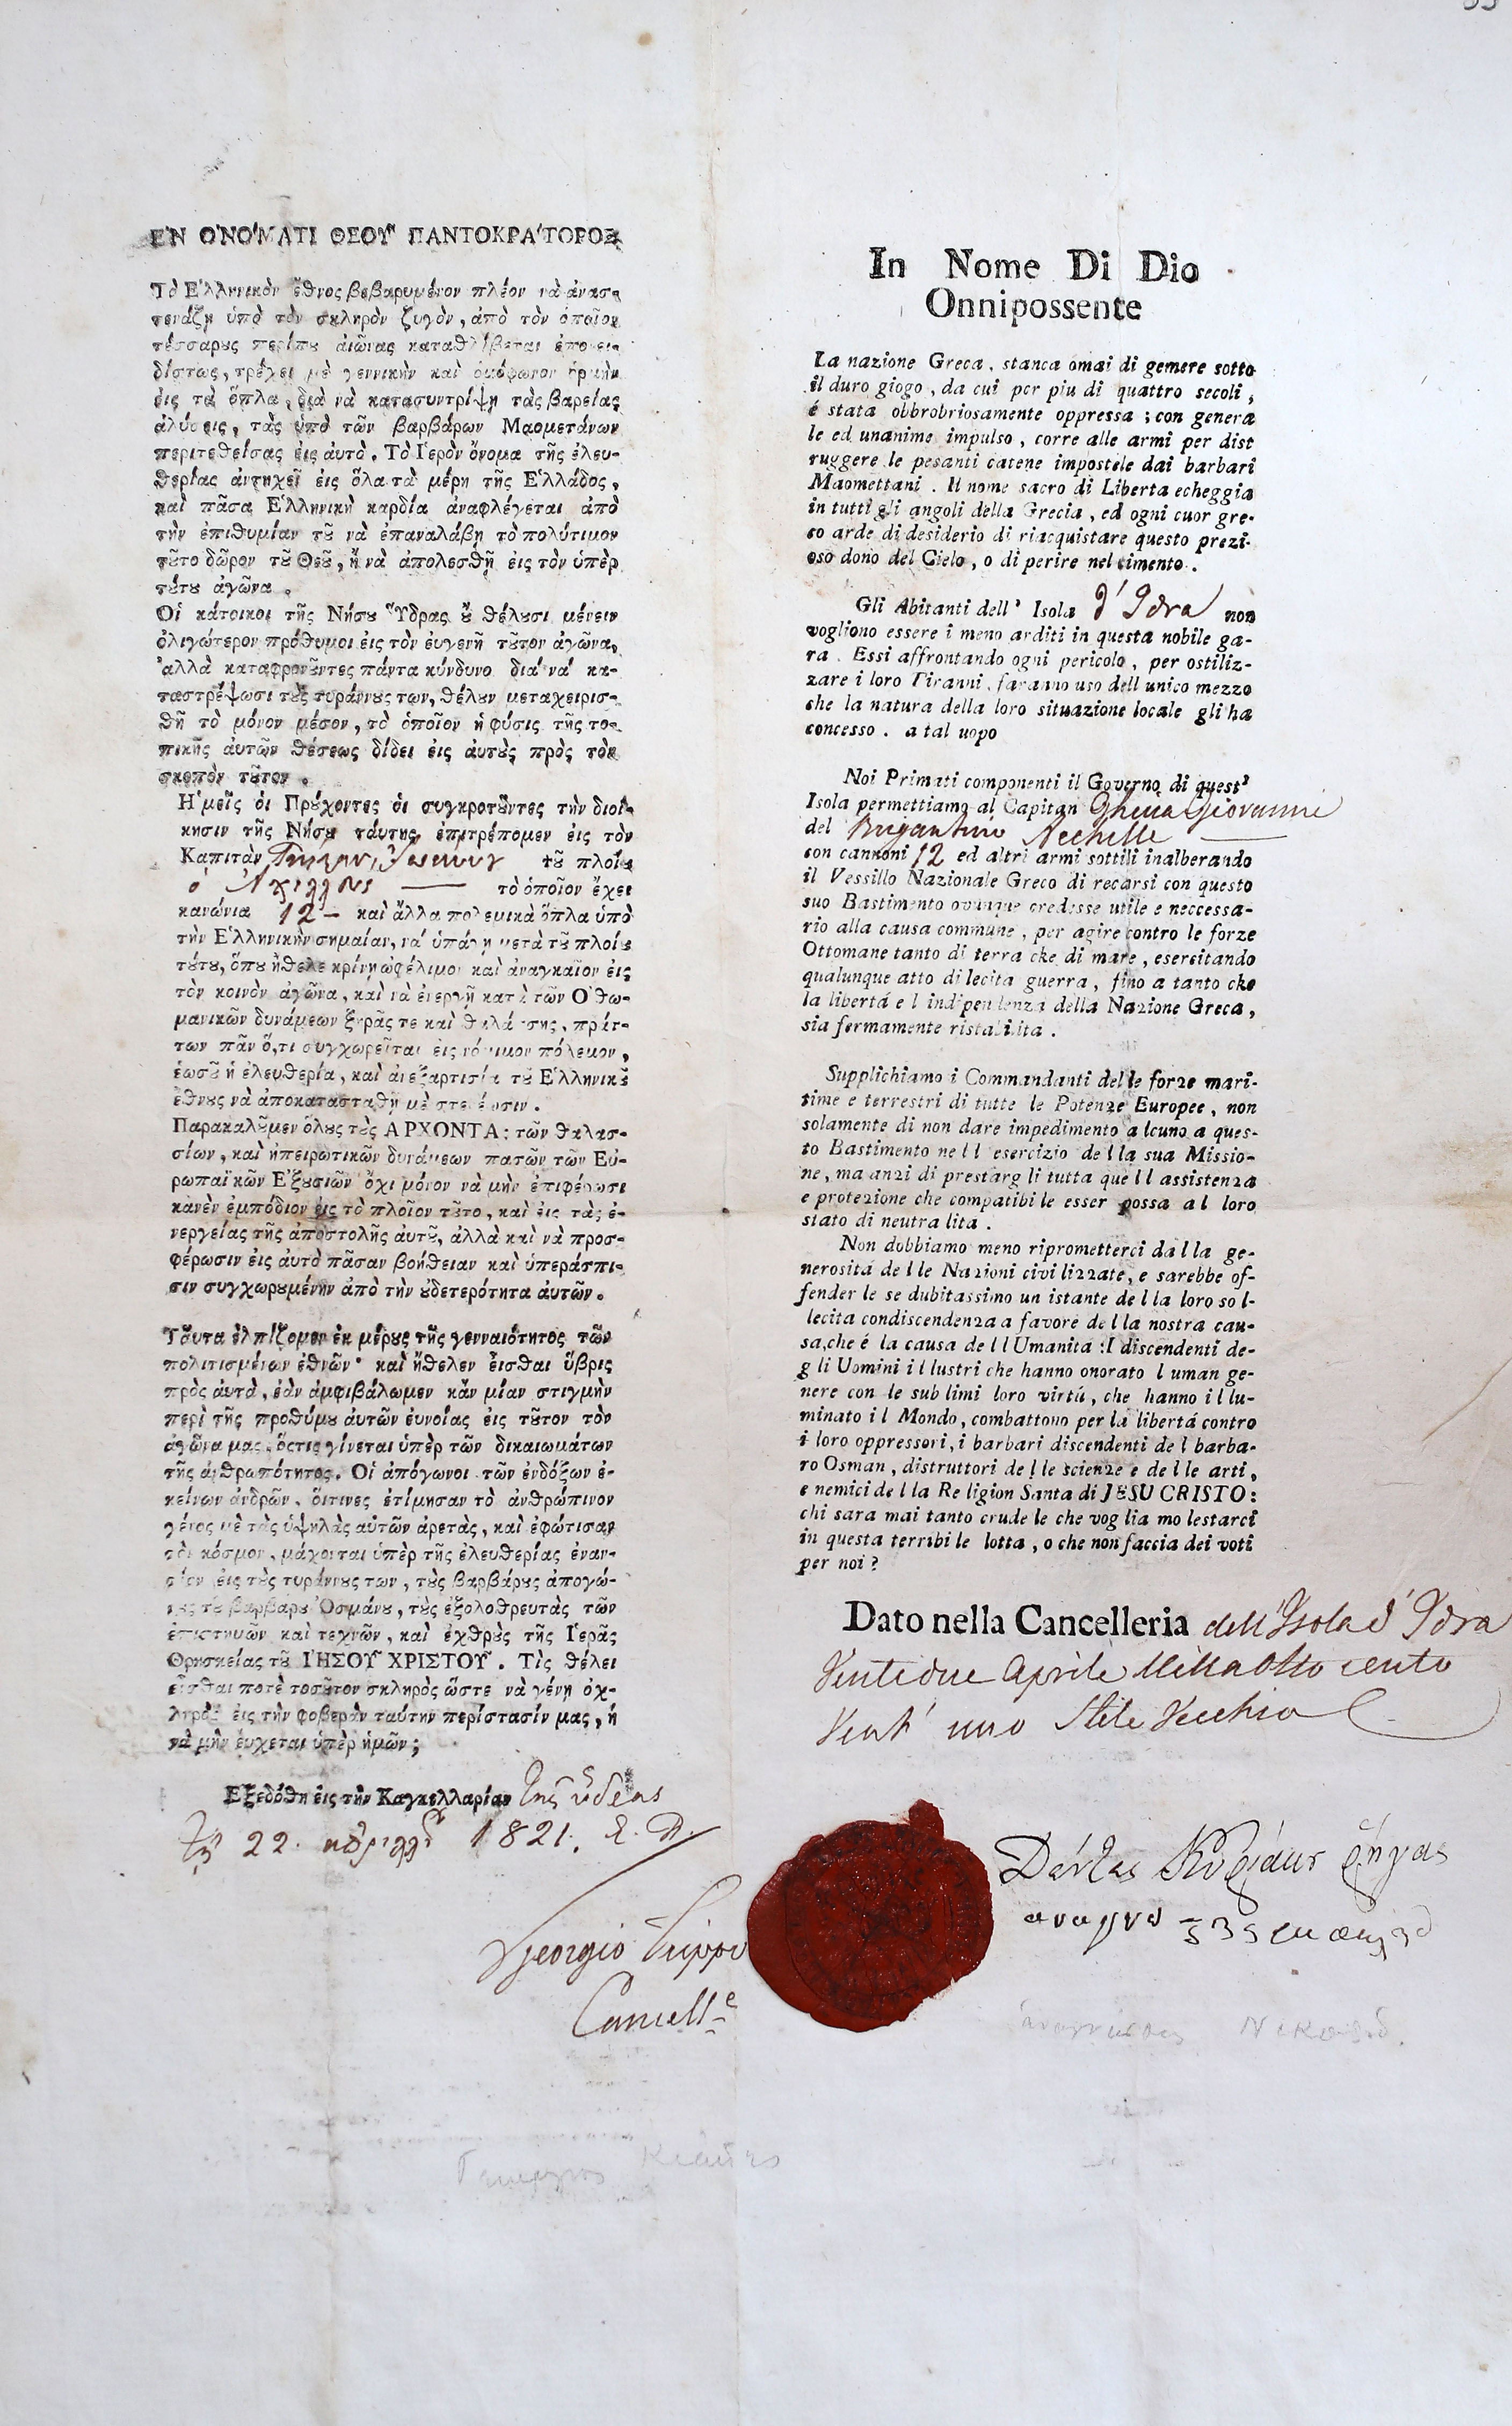 ΕʼΝ ΟʼΝΟʹΜΑΤΙ ΘΕΟΥ͂ ΠΑΝΤΟΚΡΑʹΤΟΡΟΣ
Τὸ Ἑλληνικὸν ἔθνος βεβαρυμένον πλέον νὰ ἀνασ-
τενάζῃ ὑπὸ τὸν σκληρὸν ζυγὸν, ἀπὸ τὸν ὁποῖον
τέσσαρȣς περίπȣ αἰῶνας καταθλίβεται ἐπονει-
δίστως, τρέχει μὲ γεννικὴν καὶ ὁμόφωνον ὁρμὴν
εἰς τὰ ὅπλα, διὰ νὰ κατασυντρίψῃ τὰς βαρείας
ἁλύσεις, τὰς ὑπὸ τῶν βαρβάρων Μαομετάνων
περιτεθείσας εἰς αὐτὸ. Τὸ Ἱερὸν ὄνομα τῆς ἐλευ-
θερίας ἀντηχεῖ εἰς ὅλα τὰ μέρη τῆς Ἑλλάδος,
καὶ πᾶσα Ἑλληνικὴ καρδία ἀναφλέγεται ἀπὸ
τὴν ἐπιθυμίαν τȣ͂ νὰ ἐπαναλάβῃ τὸ πολύτιμον
τȣ͂το δῶρον τȣ͂ Θεȣ͂, ἢ νὰ ἀπολεσθῇ εἰς τὸν ὑπὲρ
τȣ́τȣ ἀγῶνα.
Οἱ κάτοικοι τῆς Νήσȣ Ὕδρας ȣ̓ θέλȣσι μένειν
ὀλιγώτερον πρόθυμοι εἰς τὸν εὐγενῆ τȣ͂τον ἀγῶνα,
ἀλλὰ καταφρονȣ͂ντες πάντα κύνδυνο διὰ νὰ κα-
ταστρέψωσι τȣ̀ς τυράννȣς των, θέλȣν μεταχειρισ-
θῆ τὸ μόνον μέσον, τὸ ὁποῖον ἡ φύσις τῆς το-
πικῆς αὐτῶν θέσεως δίδει εἰς αὐτȣ̀ς πρὸς τὸν
σκοπὸν τȣ͂τον.
Ἡμεῖς οἱ Πρȣ́χοντες οἱ συγκροτȣ͂ντες τὴν διοί-
κησιν τῆς Νήσȣ ταύτης ἐπιτρέπομεν εἰς τὸν
Καπιτὰν τȣ͂ πλοίȣ
ὁ Ἀχιλλεὺς — τὸ ὁποῖον ἔχει
κανόνια 12 – καὶ ἄλλα πολεμικὰ ὅπλα ὑπὸ
τὴν Ἑλληνικὴν σημαίαν, νὰ ὑπάγῃ μετὰ τȣ͂ πλοίȣ
τȣ́τȣ, ὅπȣ ἤθελε κρίνῃ ὠφέλιμον καὶ ἀναγκαῖον εἰς
τὸν κοινὸν ἀγῶνα, καὶ νὰ ἐνεργῇ κατὰ τῶν Ὀθω-
μανικῶν δυνάμεων ξηρᾶς τε καὶ θαλάσσης, πράτ-
των πᾶν ὅ,τι συγχωρεῖται εἰς νόμιμον πόλεμον,
ἑωσȣ͂ ἡ ἐλευθερία, καὶ ἀνεξαρτισία τȣ͂ Ἑλληνικȣ͂
ἔθνȣς νὰ ἀποκατασταθῇ μὲ στερέωσιν.
Παρακαλȣ͂μεν ὅλȣς τȣ̀ς ΑΡΧΟΝΤΑΣ τῶν θαλασ-
σίων, καὶ ἠπειρωτικῶν δυνάμεων πασῶν τῶν Εὐ-
ρωπαϊκῶν Ἐξȣσιῶν ὄχι μόνον νὰ μὴν ἐπιφέρωσι
κανὲν ἐμπόδιον εἰς τὸ πλοῖον τȣ͂το, καὶ εἰς τὰς ἐ-
νεργείας τῆς ἀποστολῆς αὐτȣ͂, ἀλλὰ καὶ νὰ προσ-
φέρωσιν εἰς αὐτὸ πᾶσαν βοήθειαν καὶ ὑπεράσπι-
σιν συγχωρȣμένην ἀπὸ τὴν ȣ̓δετερότητα αὐτῶν.
Ταῦτα ἐλπίζομεν ἐκ μέρȣς τῆς γενναιότητος τῶν
πολιτισμένων ἐθνῶν· καὶ ἤθελεν εἶσθαι ὕβρις
πρὸς αὐτὰ, ἐὰν ἀμφιβάλωμεν κᾂν μίαν στιγμὴν
περὶ τῆς προθύμȣ αὐτῶν εὐνοίας εἰς τȣ͂τον τὸν
ἀγῶνα μας, ὅστις γίνεται ὑπὲρ τῶν δικαιωμάτων
τῆς ἀνθρωπότητος. Οἱ ἀπόγωνοι τῶν ἐνδόξων ἐ-
κείνων ἀνδρῶν, ὅιτινες ἐτίμησαν τὸ ἀνθρώπινον
γένος μὲ τὰς ὑψηλὰς αὐτῶν ἀρετὰς, καὶ ἐφώτισαν
τὸν κόσμον, μάχονται ὑπὲρ τῆς ἐλευθερίας ἐναν-
τίον εἰς τȣ̀ς τυράννȣς των, τȣ̀ς βαρβάρȣς ἀπογώ-
νȣς τȣ͂ βαρβάρȣ Ὀσμάνȣ, τȣ̀ς ἐξολοθρευτὰς τῶν
ἐπιστημῶν καὶ τεχνῶν, καὶ ἐχθρȣ̀ς τῆς Ἱερᾶς
Θρησκείας τȣ͂ ἸΗΣΟΥ͂ ΧΡΙΣΤΟΥ͂. Τὶς θέλει
εἶσθαι ποτὲ τοσȣ͂τον σκληρὸς ὥστε νὰ γένῃ ὀχ-
ληρὸς εἰς τὴν φοβερὰν ταύτην περίστασίν μας, ἢ
νὰ μὴν εὔχεται ὑπὲρ ἡμῶν;
Εξεδόθη εἰς τὴν Καγκελλαρίαν τῆς ὕδρας
τῇ 22. ἀπριλλίȣ 1821. Ε. Π.
Georgio
Cancell.e
In Nome Di Dio
Onnipossente
La nazione Greca, stanca omai di gemere sotto
il duro giogo, da cui per piu di quattro secoli,
é stata obbrobriosamente oppressa; con genera
le ed unanime impulso, corre alle armi per dist
ruggere le pesanti catene impostele dai barbari
Maomettani. Il nome sacro di Liberta echeggia
in tutti gli angoli della Grecia, ed ogni cuor gre-
co arde di desiderio di riacquistare questo prezi-
oso dono del Cielo, o di perire nel cimento.
Gli Abitanti dell' Isola d'Idra non
vogliono essere i meno arditi in questa nobile ga-
ra. Essi affrontando ogni pericolo, per ostiliz-
zare i loro Tiranni, faranno uso dell unico mezzo
che la natura della loro situazione locale gli ha
concesso. a tal uopo
Noi Primati componenti il Governo di quest'
Isola permettiamo al Capitan Ghicca Giovanni
del Brigantino Acchille —
con cannoni 12 ed altri armi sottili inalberando
il Vessillo Nazionale Greco di recarsi con questo
suo Bastimento ovunque credesse utile e neccessa-
rio alla causa commune, per agire contro le forze
Ottomane tanto di terra che di mare, esercitando
qualunque atto di lecita guerra, fino a tanto che
la libertá e l indipendenza della Nazione Greca,
sia fermamente ristabilita.
Supplichiamo i Commandanti delle forze mari-
time e terrestri di tutte le Potenze Europee, non
solamente di non dare impedimento alcuno a ques-
to Bastimento nell esercizio della sua Missio-
ne, ma anzi di prestargli tutta quell assistenza
e protezione che compatibile esser possa al loro
stato di neutralita.
Non dobbiamo meno ripromettercì dalla ge-
nerositá delle Nazioni civilizzate, e sarebbe of-
fenderle se dubitassimo un istante della loro sol-
lecita condiscendenza a favore della nostra cau-
sa, che é la causa dell Umanita: I discendenti de-
gli Uomini illustri che hanno onorato l uman ge-
nere con le sublimi loro virtú, che hanno illu-
minato il Mondo, combattono per la libertá contro
i loro oppressori, i barbari discendenti del barba-
ro Osman, distruttori delle scienze e delle arti,
e nemici della Religion Santa di JESU CRISTO:
chi sara mai tanto crudele che voglia molestarci
in questa terribile lotta, o che non faccia dei voti
per noi?
Dato nella Cancelleria dell'Isola d'Idra
Ventidue Aprile Milleotto cento
Vent' uno Stile Vecchio